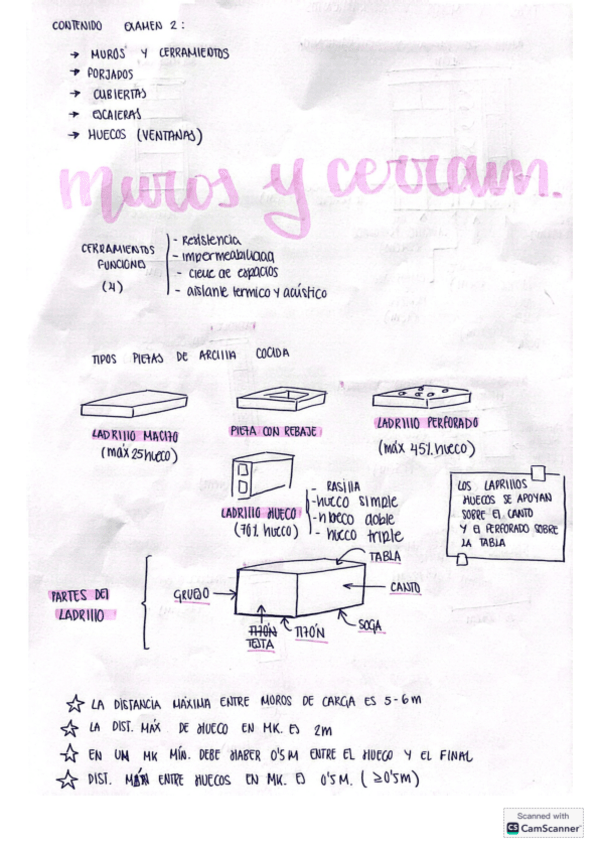 CONTENIDO EXAMEN 2:
→ MUROS Y CERRAMIENTOS
→ FORJADOS
→ CUBIERTAS
→ ESCALERAS
→ HUECOS (VENTANAS)
muros y cerram.
CERRAMIENTOS
FUNCIONES
(4)
- Resistencia
- impermeabilidad
- cierre de espacios
- aislante termico y acústico
TIPOS PIEZAS DE ARCILLA COCIDA
LADRILLO MACIZO
(máx 25 hueco)
PIEZA CON REBAJE
LADRILLO PERFORADO
(máx 45% hueco)
LADRILLO HUECO
(70% hueco)
- RASILLA
- hueco simple
- hueco doble
- hueco triple
LOS LADRILLOS
HUECOS SE APOYAN
SOBRE EL CANTO
Y EL PERFORADO SOBRE
LA TABLA
PARTES DEL
LADRILLO
GRUESO
TABLA
CANTO
SOGA
TIZÓN
TIZÓN
TESTA
☆ LA DISTANCIA MÁXIMA ENTRE MUROS DE CARGA ES 5-6m
☆ LA DIST. MÁX DE HUECO EN MK. ES 2m
☆ EN UN MK MÍN. DEBE HABER 0'5m ENTRE EL HUECO Y EL FINAL
☆ DIST. MÍN ENTRE HUECOS EN MK. ES 0'5M. (≥0'5m)
Scanned with
CS CamScanner